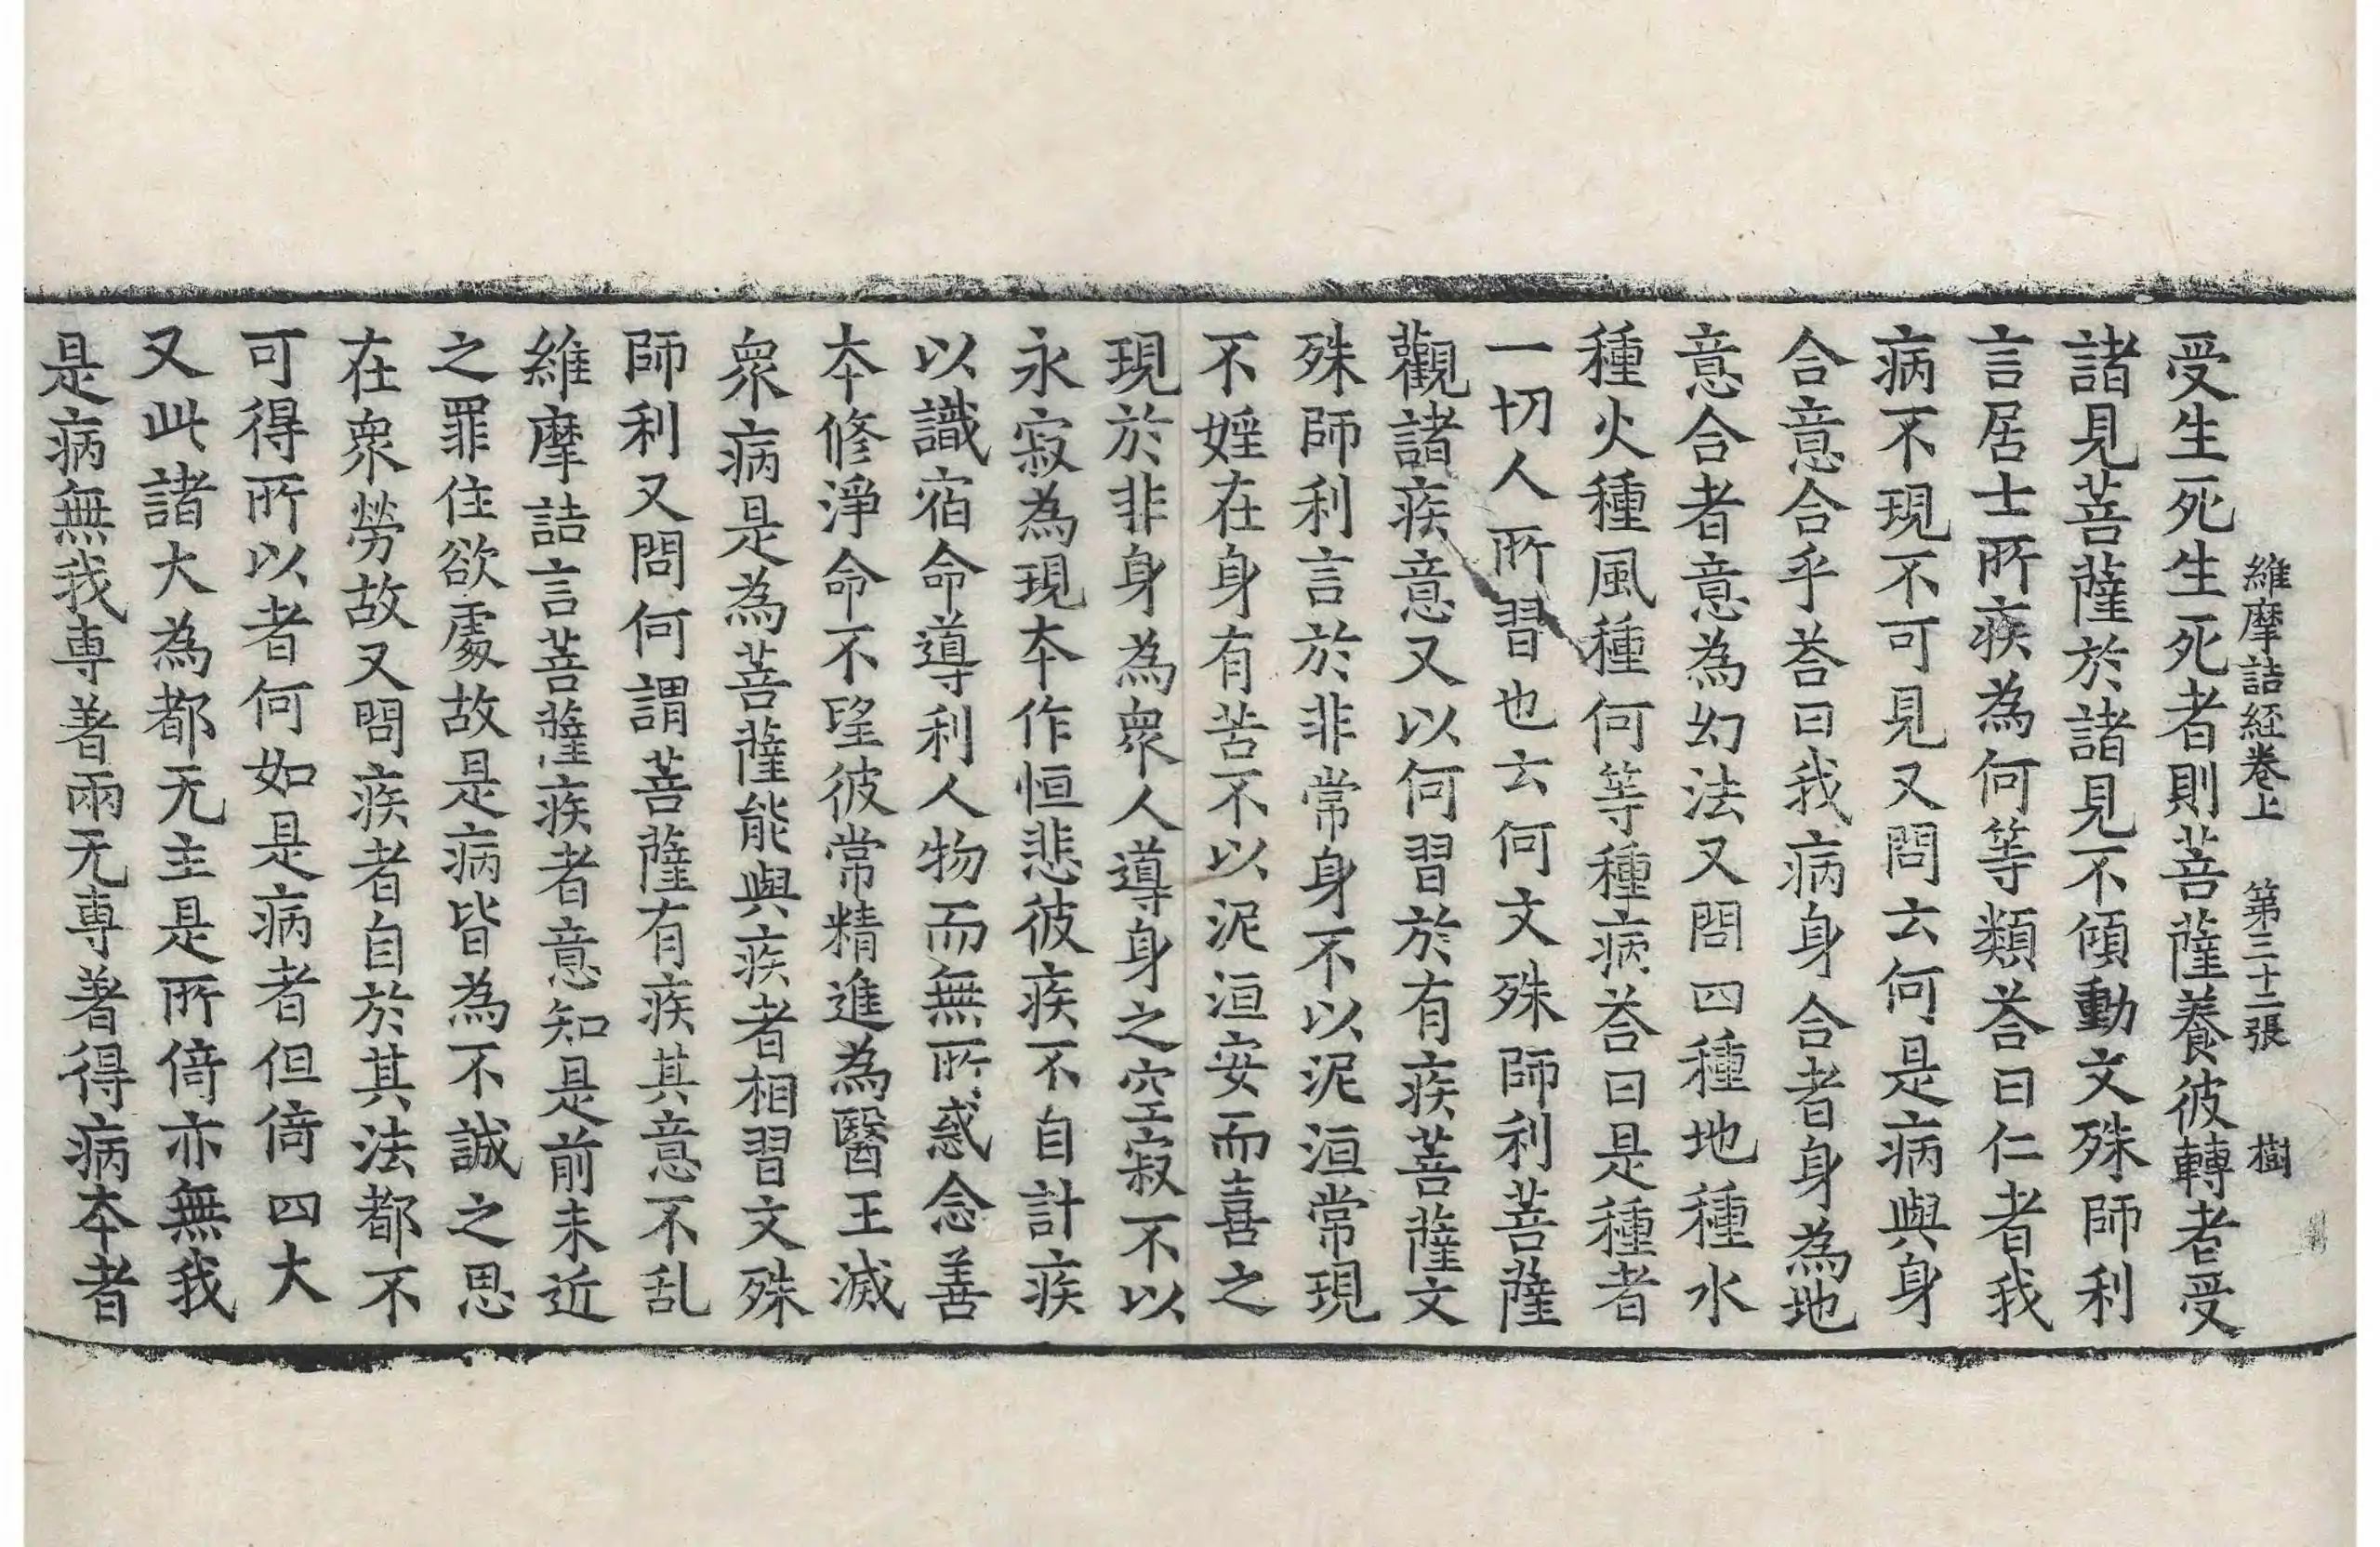 維摩詰経卷上 第三十二張 樹
受生死生死者則菩薩養彼轉者受
諸見菩薩於諸見不傾動文殊師利
言居士所疾為何等類荅曰仁者我
病不現不可見又問云何是病與身
合意合乎荅曰我病身合者身為地
意合者意為幻法又問四種地種水
種火種風種何等種病荅曰是種者
一切人所習也云何文殊師利菩薩
觀諸疾意又以何習於有疾菩薩文
殊師利言於非常身不以泥洹常現
不婬在身有苦不以泥洹安而喜之
現於非身為衆人導身之空寂不以
永寂為現本作恒悲彼疾不自計疾
以識宿命導利人物而無所惑念善
本修淨命不望彼常精進為醫王滅
衆病是為菩薩能與疾者相習文殊
師利又問何謂菩薩有疾其意不乱
維摩詰言菩薩疾者意知是前未近
之罪住欲處故是病皆為不誠之思
在衆勞故又問疾者自於其法都不
可得所以者何如是病者但倚四大
又此諸大為都无主是所倚亦無我
是病無我専著兩无専著得病本者